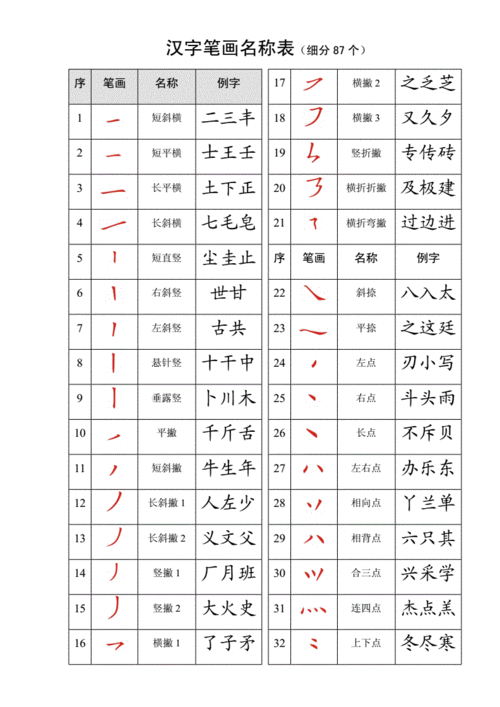 汉字笔画名称表（细分 87 个）
序 笔画 名称 例字
1 短斜横 二三丰
2 短平横 士王壬
3 长平横 土下正
4 长斜横 七毛皂
5 短直竖 尘圭止
6 右斜竖 世甘
7 左斜竖 古共
8 悬针竖 十干中
9 垂露竖 卜川木
10 平撇 千斤舌
11 短斜撇 牛生年
12 长斜撇 1 人左少
13 长斜撇 2 义文父
14 竖撇 1 厂月班
15 竖撇 2 大火史
16 横撇 1 了子矛
17 横撇 2 之乏芝
18 横撇 3 又久夕
19 竖折撇 专传砖
20 横折折撇 及极建
21 横折弯撇 过边进
序 笔画 名称 例字
22 斜捺 八入太
23 平捺 之这廷
24 左点 刃小写
25 右点 斗头雨
26 长点 不斥贝
27 左右点 办乐东
28 相向点 丫兰单
29 相背点 六只其
30 合三点 兴采学
31 连四点 杰点羔
32 上下点 冬尽寒